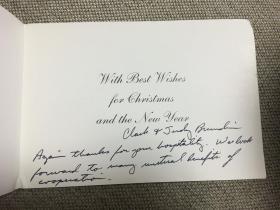 With Best Wishes
for Christmas
and the New Year
Clark & Judy
Again thanks for your hospitality. We look
forward to many mutual benefits of
cooperation.